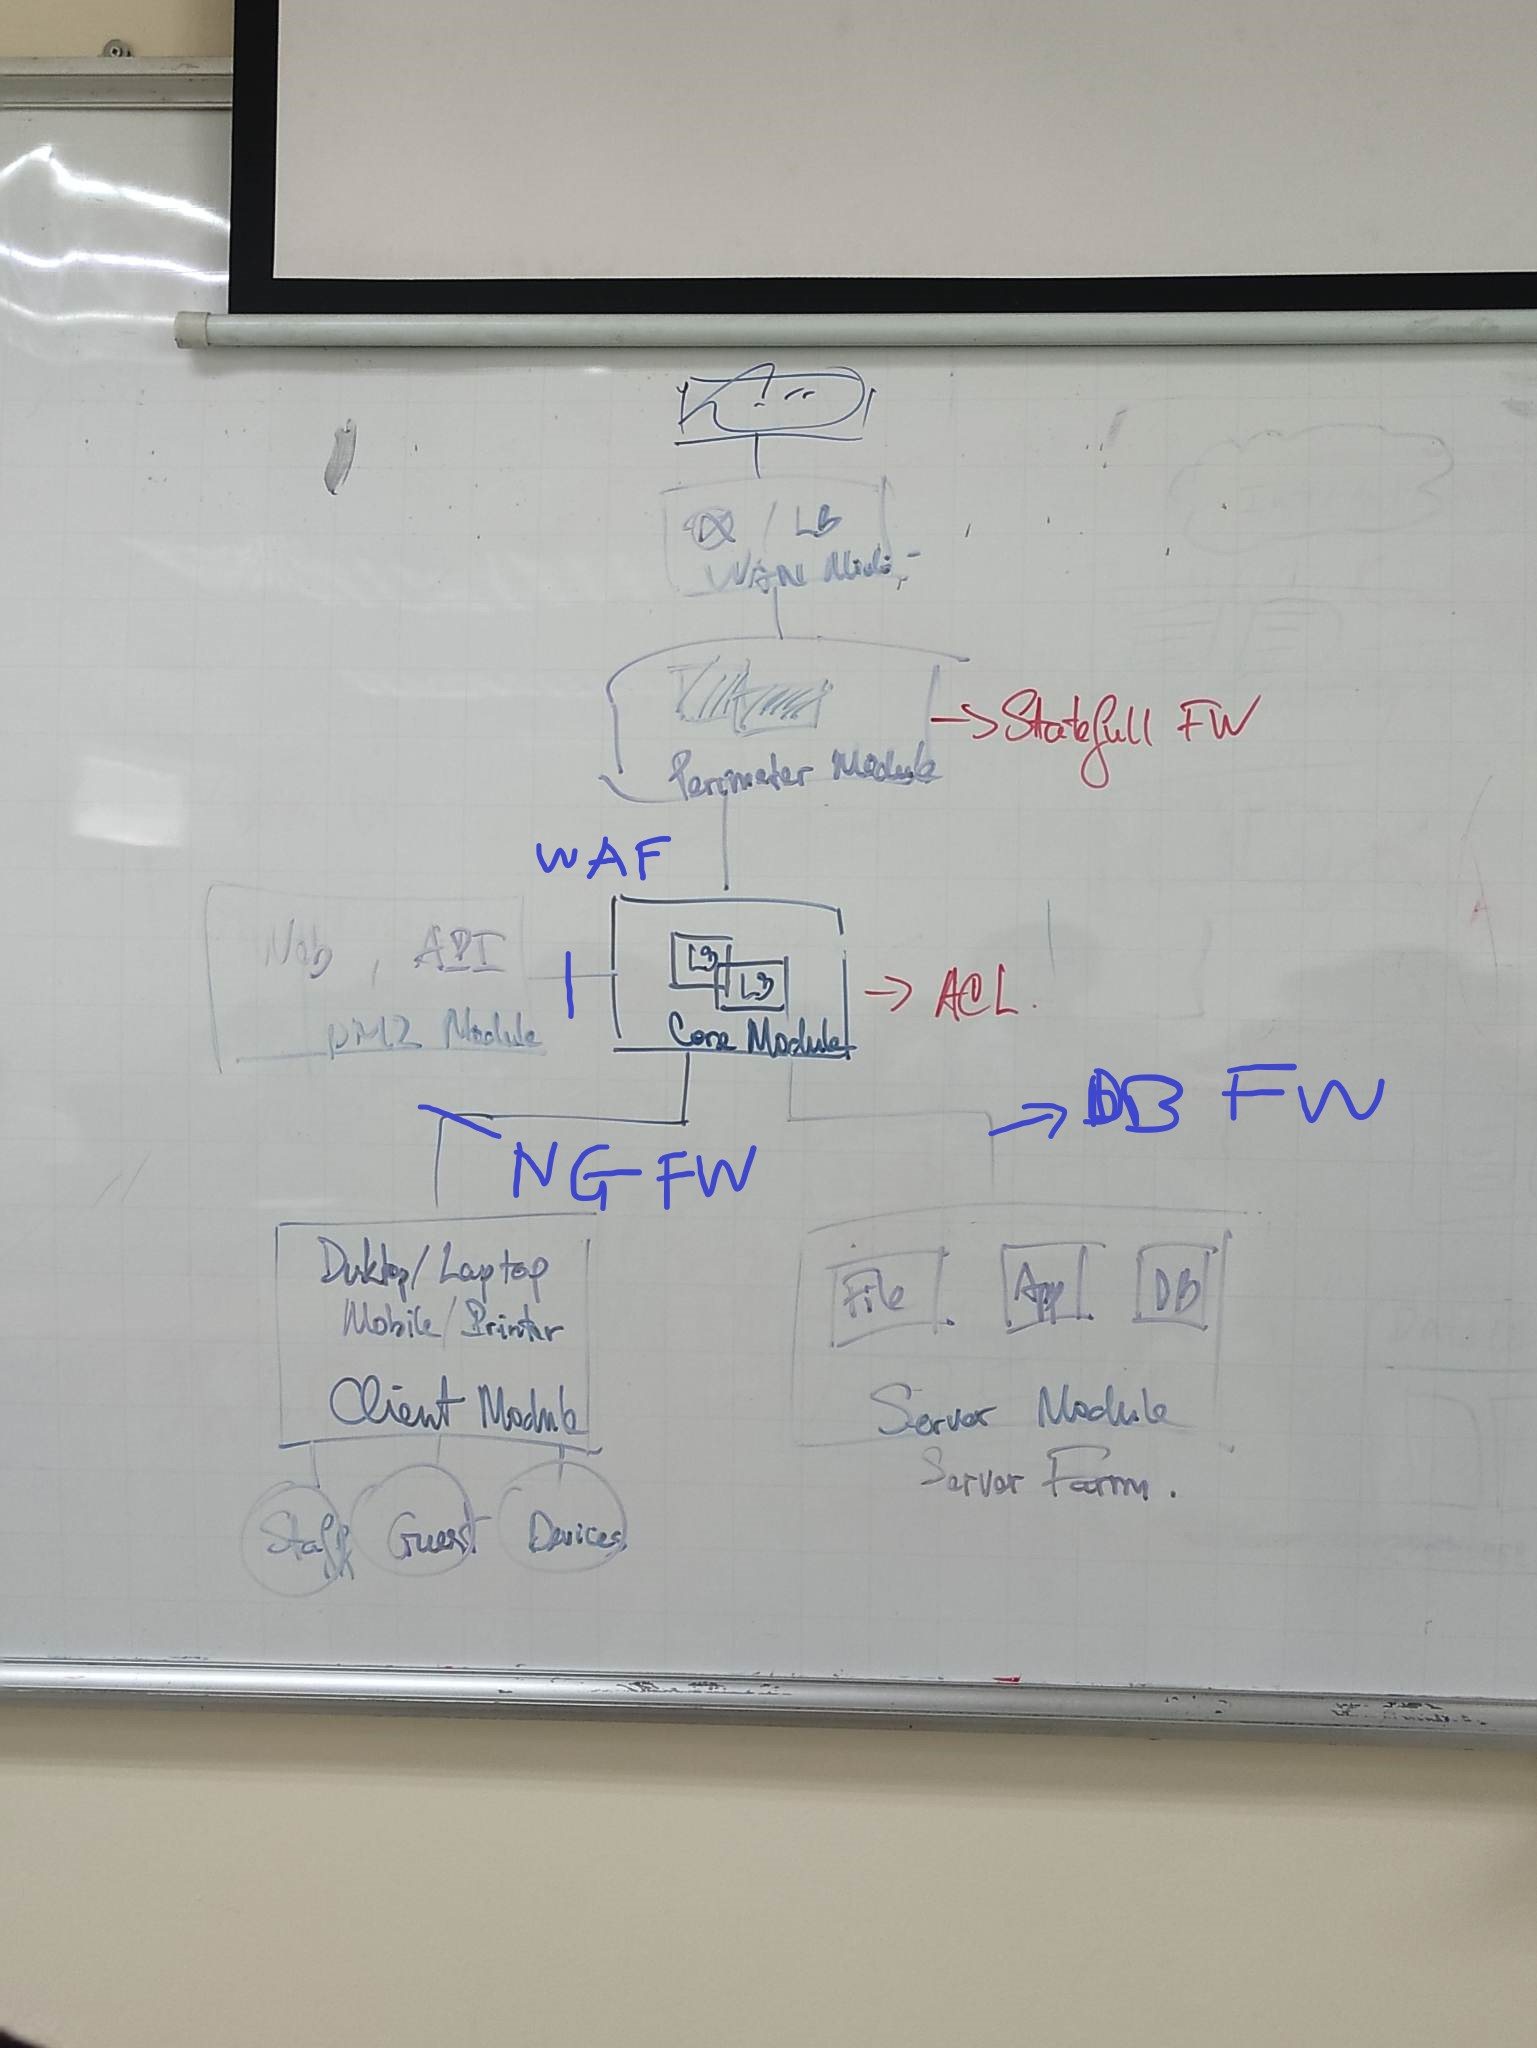 / LB
WAN
Perimeter Module
→ Statefull FW
WAF
Web, API
DMZ Module
L3
L3
Core Module
→ ACL.
NG-FW
→ DB FW
Desktop/Laptop
Mobile/Printer
Client Module
Staff
Guest
Devices
File
App
DB
Server Module
Server Farm.